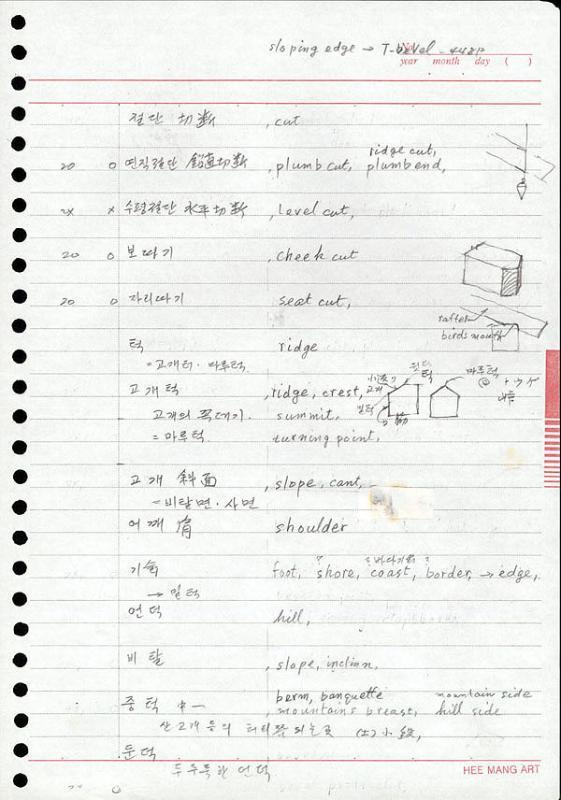 sloping edge → T-bevel
year month day ( )
절단 切斷 , cut
ridge cut,
20 0 연직절단 鉛直切斷 , plumb cut, plumb end,
2x x 수평절단 水平切斷 , Level cut,
20 0 보따기 , cheek cut
20 0 자리따기 seat cut,
rafter
birds mouth
턱 ridge
= 고개턱 · 마루턱
고개턱 , ridge, crest,
고개 마루턱
밑턱
고개의 꼭대기. summit,
= 마루턱 turning point,
고개 斜面 , slope, cant,
= 비탈면 · 사면
어깨 肩 shoulder
기슭 foot, shore, coast, border, → edge,
→ 밑턱
언덕 hill,
비탈 , slope, inclinn,
중턱 中一 berm, banquette mountain side
mountains breast, hill side
산 고개 등의 허리쯤 되는 곳 (土) 小段,
둔덕
두두룩한 언덕
HEE MANG ART